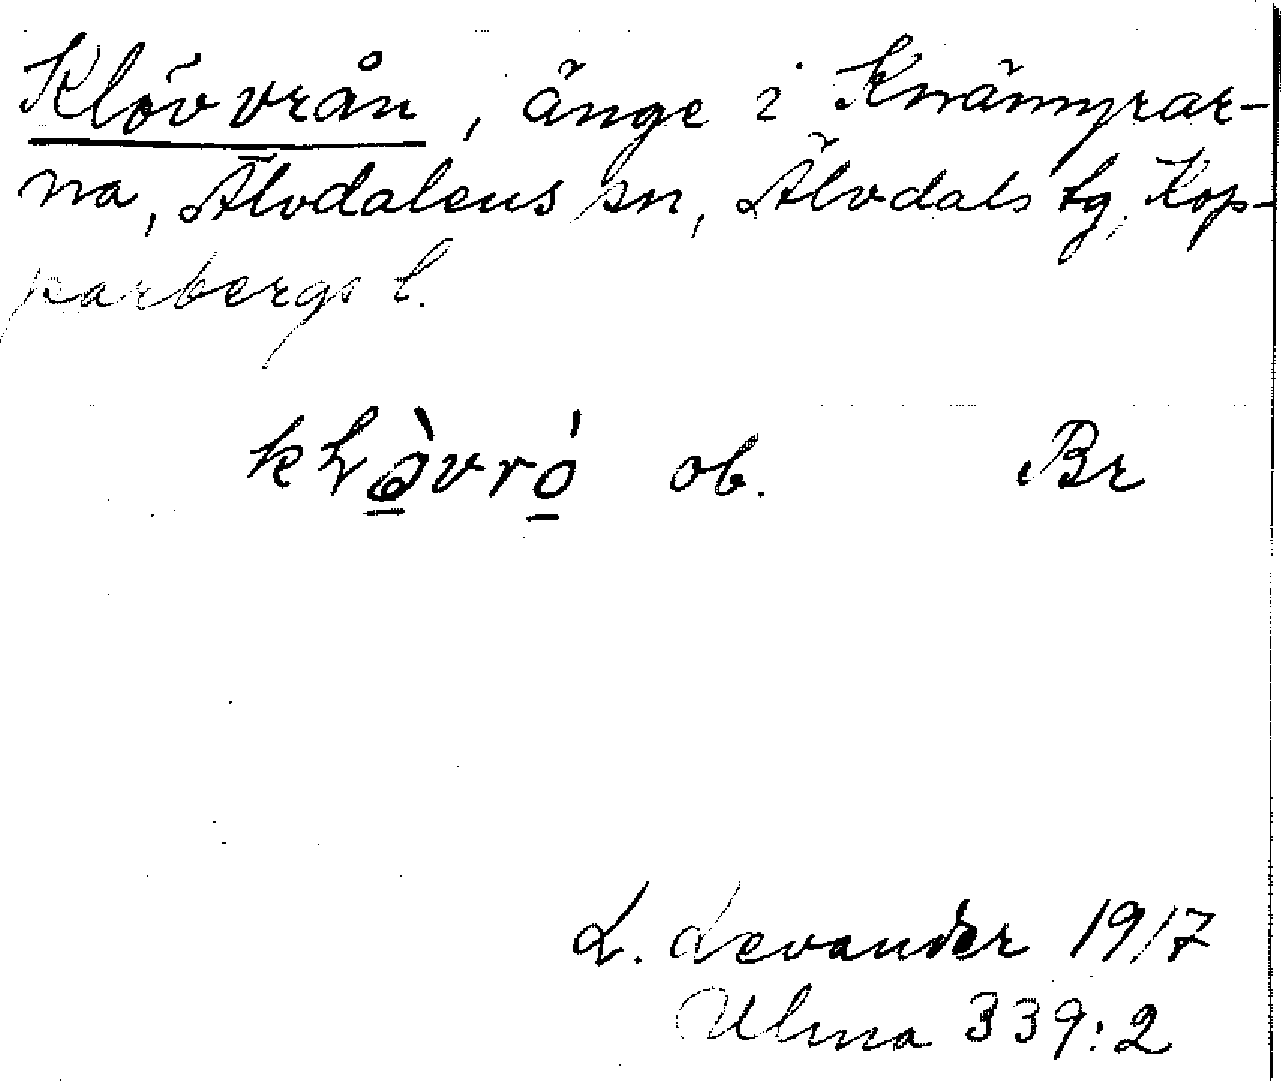 Klövvrån, änge i Knämyrar-
na, Älvdalens sn, Älvdals tg, Kop-
parbergs l.
ob. Br
L. Levander 1917
Ulma 339:2